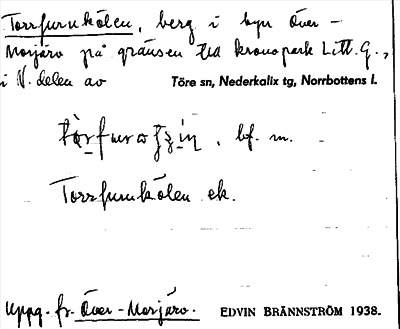 Torrfurukölen, berg i byn Över-
Morjärv på gränsen till kronopark Litt. G.,
i V. delen av Töre sn, Nederkalix tg, Norrbottens l.
, bf. m.
Torrfurukölen ek.
Uppg. fr. Över-Morjärv. EDVIN BRÄNNSTRÖM 1938.